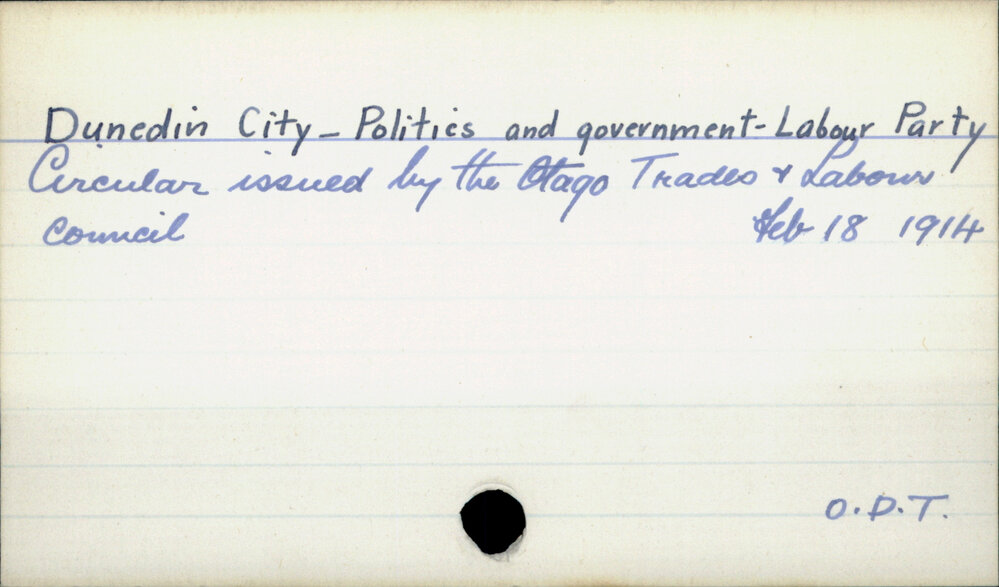 Dunedin City - Politics and government - Labour Party
Circular issued by the Otago Trades & Labour
Council Feb 18 1914
O.D.T.